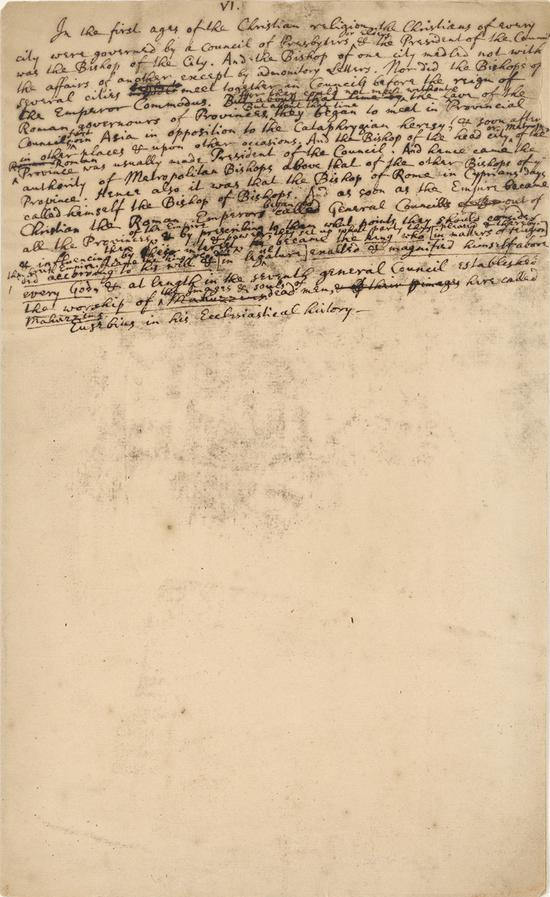 VI.
In the first ages of the Christian religion the Christians of every
city were governed by a Council of Presbyters or elders, & the President of the Council
was the Bishop of the City. And the Bishop of one city medled not with
the affairs of another, except by admonitory Letters. Nor did the Bishops of
several cities meet together in Councils before the reign of
the Emperor Commodus. For they could not meet without the leave of the
But about that time
Roman governours of Provinces, they began to meet in Provincial
Councils upon Asia in opposition to the Cataphrygian heresy, & soon after
in other places & upon other occasions. And the Bishop of the head city, or Metropolis of the
Roman
Province was usually made President of the Council. And hence came the
authority of Metropolitan Bishops above that of the other Bishops of ye
Province. Hence also it was that the Bishop of Rome in Cyprians days
called himself the Bishop of Bishops. And as soon as the Empire became
Christian the Roman Emperors began to call General Councils out of
all the Provinces of the Empire & by prescribing what points they should
& influencing by their interest &
according to his will & in matters of religion
exalted & magnified himself above
every God, & at length in the seventh general Council established
the worship of images & souls of dead men, here called
Mahuzzims.
Eusebius in his Ecclesiastical history